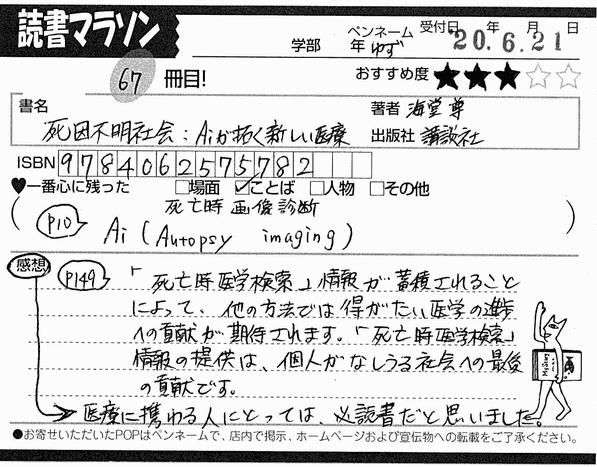 読書マラソン
学部 年 ペンネーム ゆず 受付日 年 月 日 20.6.21
67 冊目! おすすめ度 ★★★☆☆
書名 著者 海堂尊
死因不明社会:Aiが拓く新しい医療 出版社 講談社
ISBN 9784062575782
♥一番心に残った □場面 ☑ことば □人物 □その他
死亡時画後診断
P10 Ai (Autopsy imaging)
感想 P149 「死亡時医学検索」情報が蓄積されること
によって、他の方法では得がたい医学の進歩
への貢献が期待されます。「死亡時医学検索」
情報の提供は、個人がなしうる社会への最後
の貢献です。
→医療に携わる人にとっては、必読書だと思いました。
●お寄せいただいたPOPはペンネームで、店内で掲示、ホームページおよび宣伝物への転載をご了承ください。